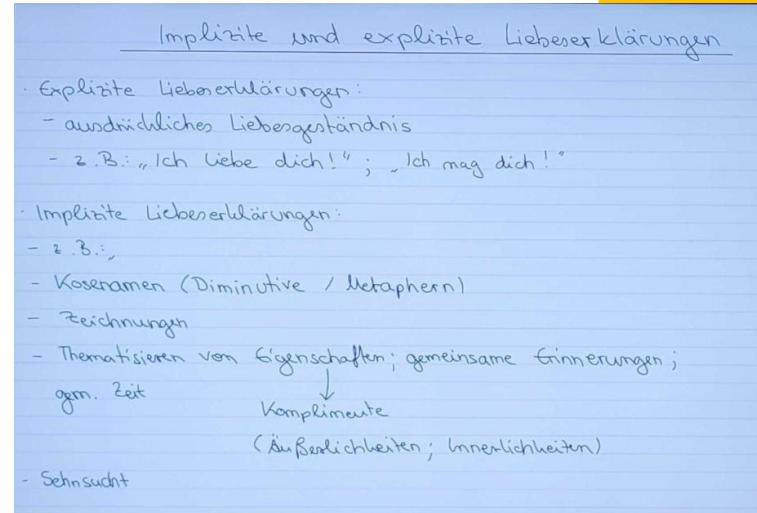 Implizite und explizite Liebeserklärungen
· Explizite Liebeserklärungen:
- ausdrückliches Liebesgeständnis
- z.B.: „Ich liebe dich!“; „Ich mag dich!“
· Implizite Liebeserklärungen:
- z.B.: „
- Kosenamen (Diminutive / Metaphern)
- Zeichnungen
- Thematisieren von Eigenschaften; gemeinsame Erinnerungen;
gem. Zeit
↓
Komplimente
(Äußerlichkeiten; Innerlichkeiten)
- Sehnsucht